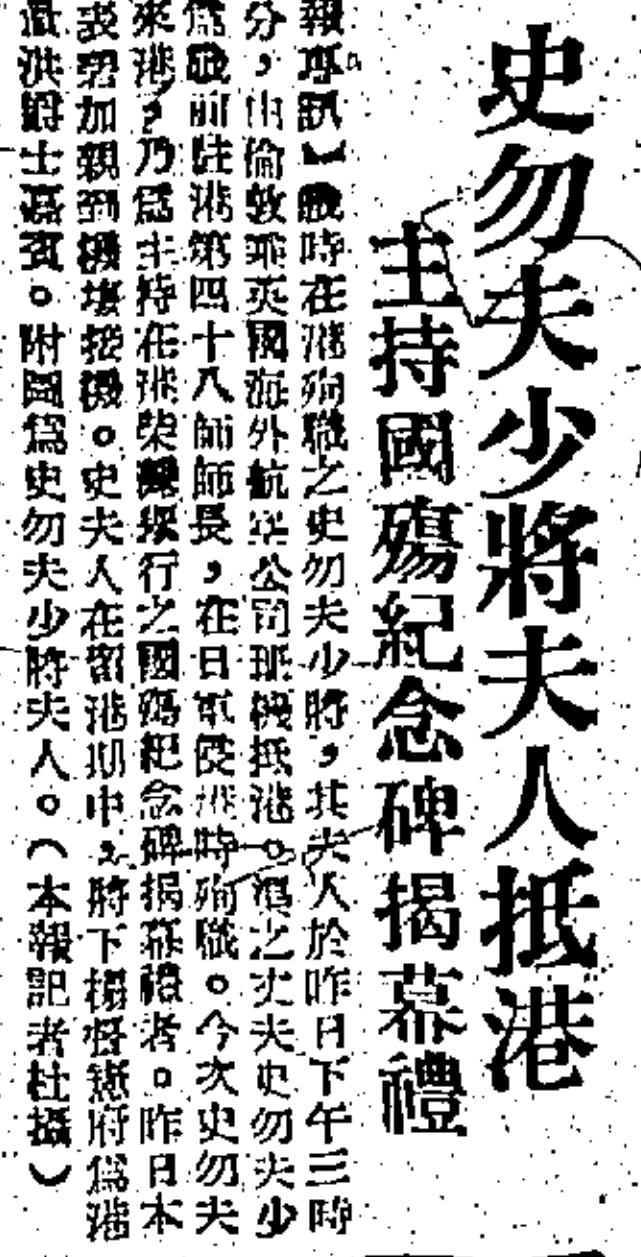 史勿夫少將夫人抵港
主持國殤紀念碑揭幕禮
報專訊】戰時在港殉職之史勿夫少將，其夫人於昨日下午三時
分，由倫敦乘英國海外航空公司班機抵港。之丈夫史勿夫少
為戰前駐港第四十八師師長，在日軍侵港時殉職。今次史勿夫
來港，乃為主持在港榮行之國殤紀念碑揭幕禮者。昨日本
親到機塲接機。史夫人在留港期中，將下榻督憲府為港
洪爵士嘉賓。附圖為史勿夫少將夫人。（本報記者杜攝）